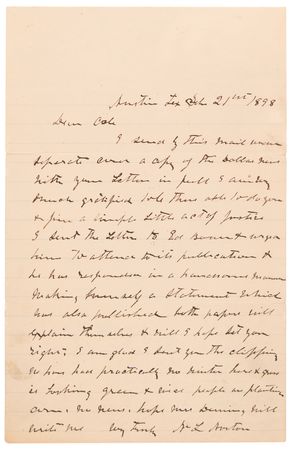 Austin Tex Feb 21st/1898
Dear Col.
I send by this mail under
seperate cover a copy of the Dallas News
with your Letter in full I am very
much gratified to be thus able to do you
this simple little act of justice
I sent the Letter to Ed and urged
him to attend to its publication &
he has responded in a handsome manner
making himself a statement which
was also published both papers will
explain themselves & will I hope set you
right. I am glad I sent you the clipping
We have had practically no winter here & grass
is looking green & nice people are planting
corn. no news. hope Mrs will
write me My Truly N L Norton